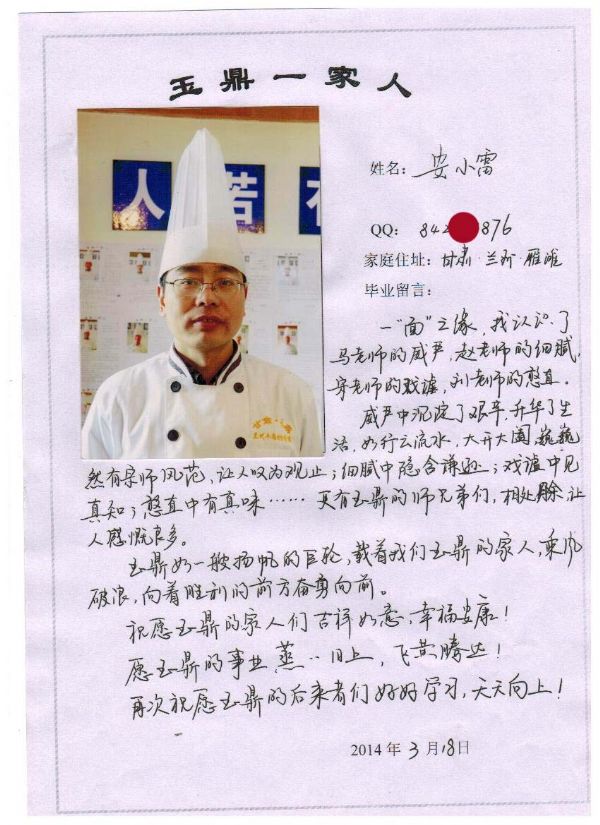 玉鼎一家人
人 若
姓名：安小雷
QQ：842 876
家庭住址：甘肃·兰州·雁滩
毕业留言：
一“面”之缘，我认识了
马老师的威严，赵老师的细腻，
宋老师的戏谑，刘老师的憨直。
威严中沉淀了艰辛，升华了生
活，如行云流水，大开大阖，巍巍
然有宗师风范，让人叹为观止；细腻中隐含谦逊；戏谑中见
真知；憨直中有真味……更有玉鼎的师兄弟们，相处 让
人感慨良多。
玉鼎如一艘扬帆的巨轮，载着我们玉鼎的家人，乘风
破浪，向着胜利的前方奋勇向前。
祝愿玉鼎的家人们吉祥如意，幸福安康！
愿玉鼎的事业蒸蒸日上，飞黄腾达！
再次祝愿玉鼎的后来者们好好学习，天天向上！
2014年3月18日